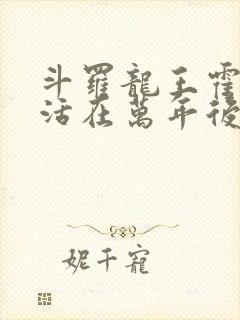 斗羅龍王霍
活在萬年後
妮千寵